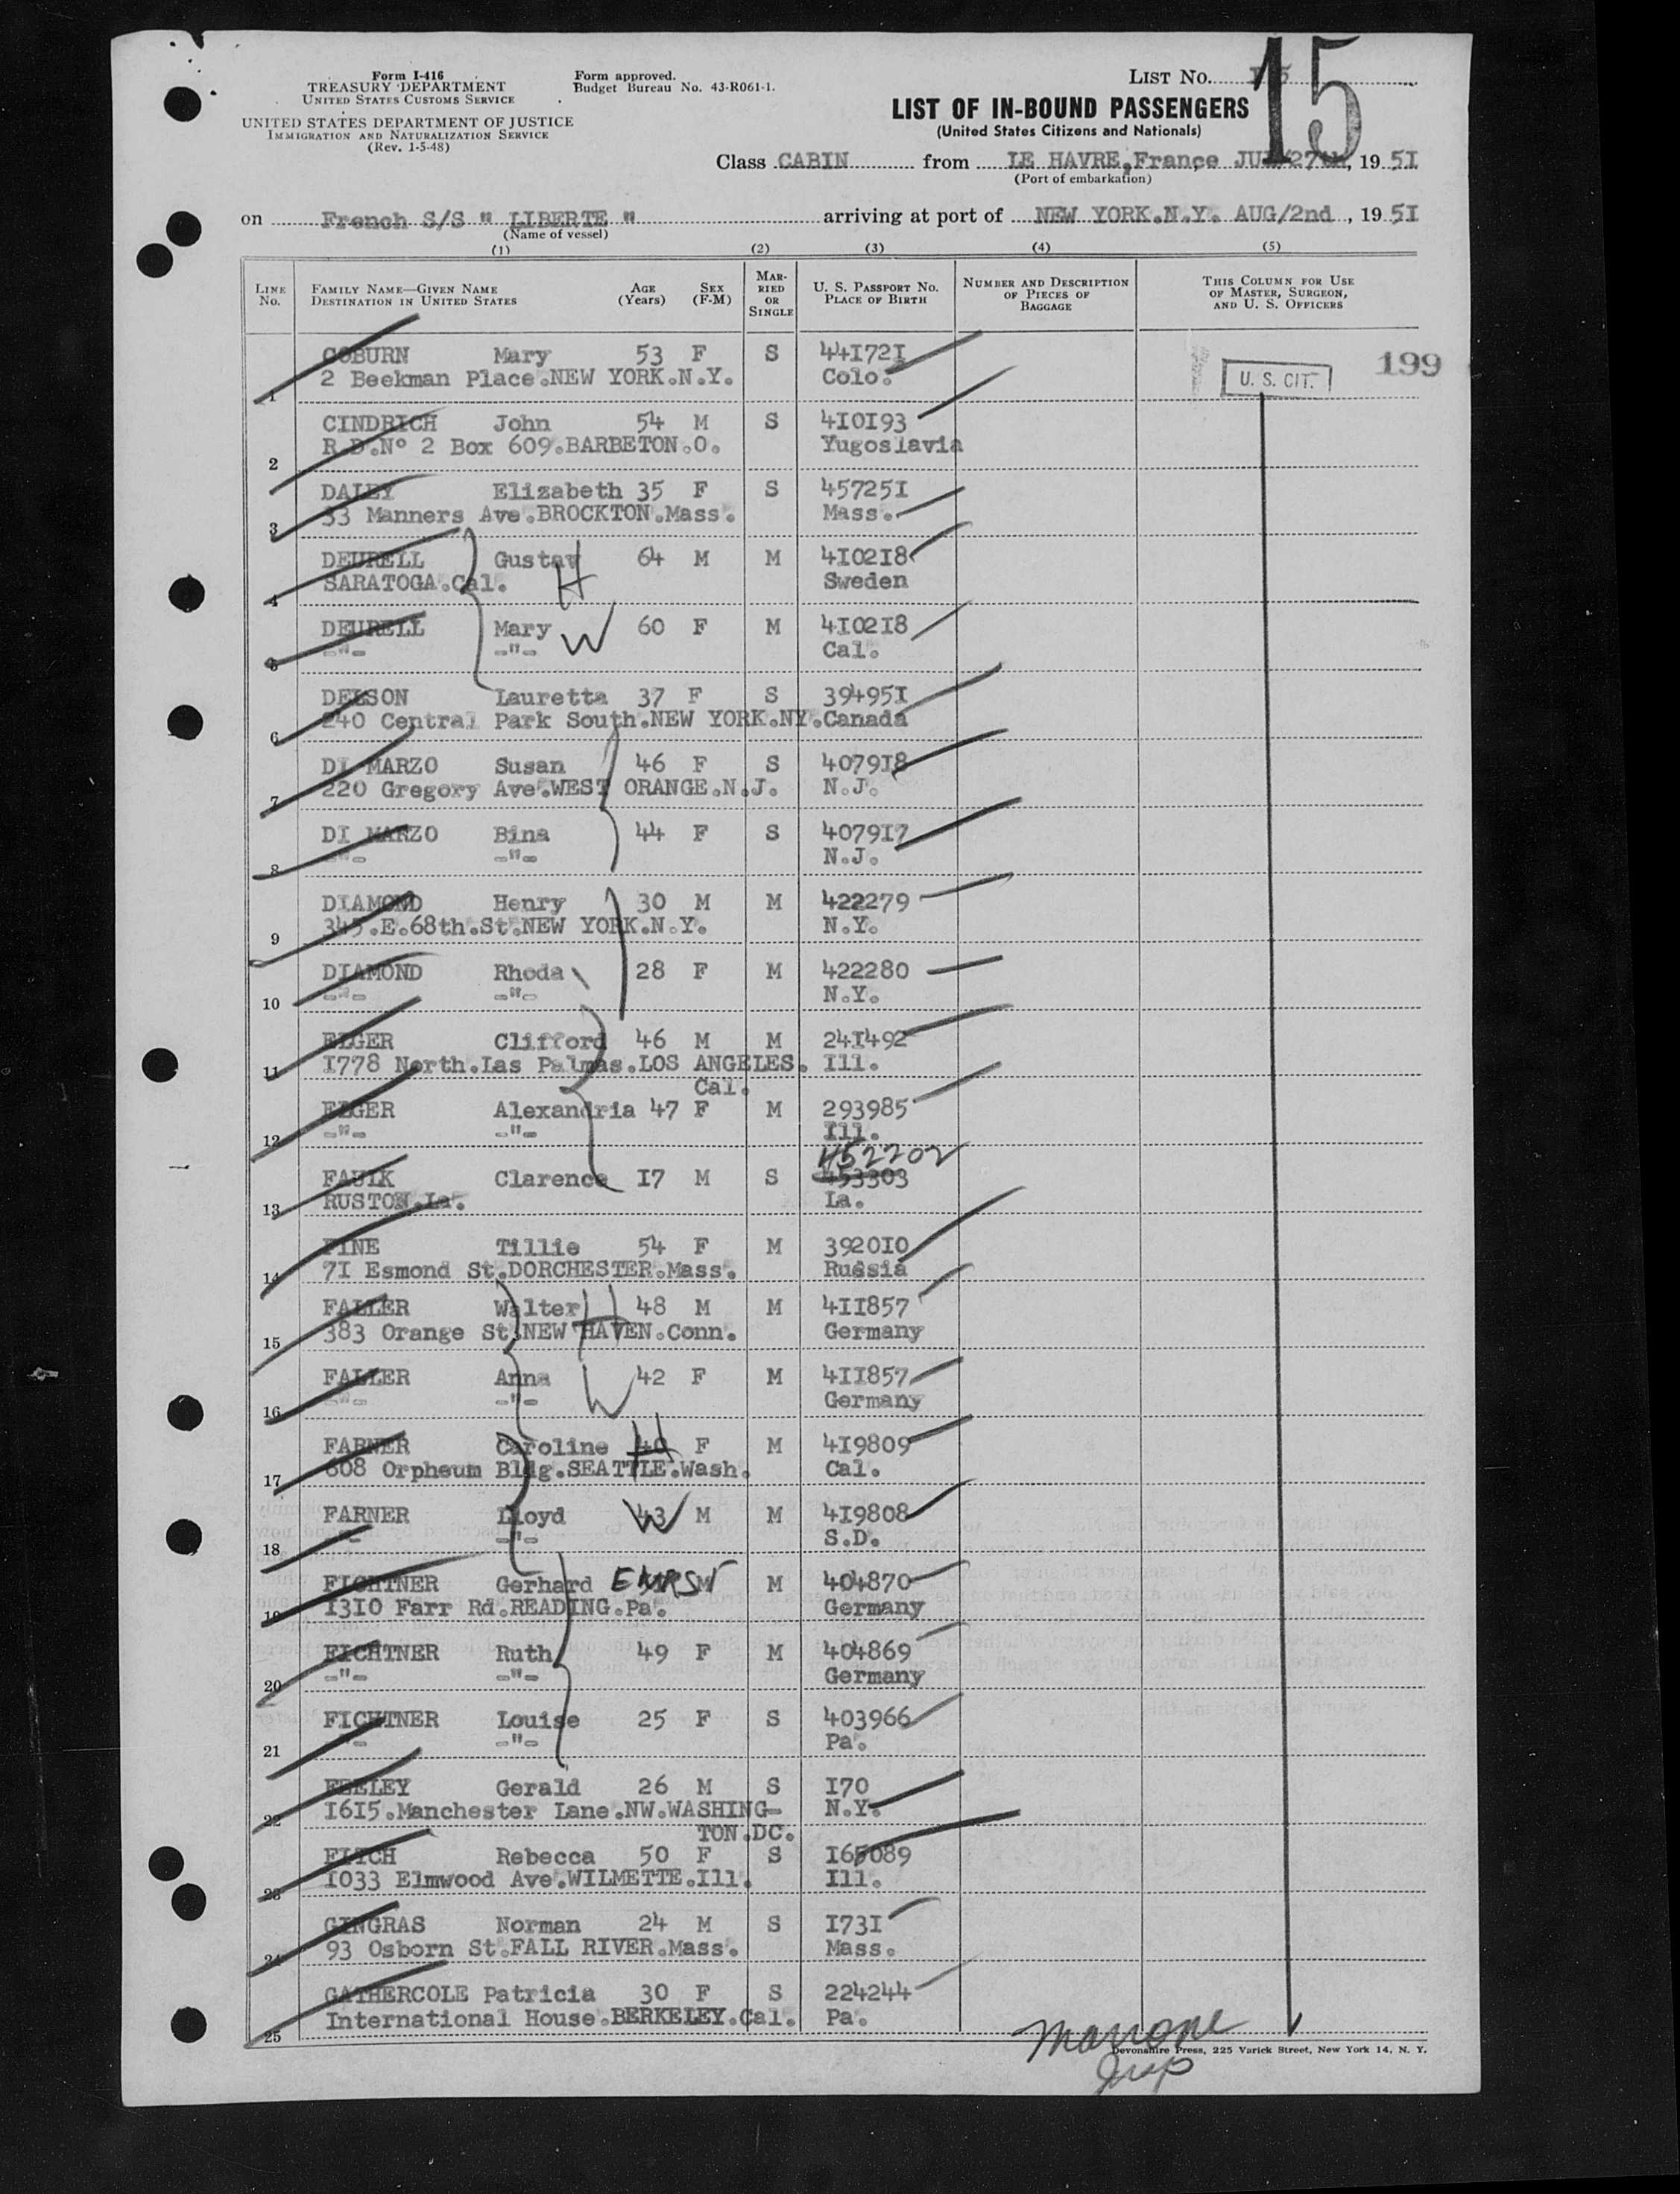 Form I-416
TREASURY DEPARTMENT
UNITED STATES CUSTOMS SERVICE
UNITED STATES DEPARTMENT OF JUSTICE
IMMIGRATION AND NATURALIZATION SERVICE
(Rev. 1-5-48)
Form approved.
Budget Bureau No. 43-R061-1.
LIST No. 15
LIST OF IN-BOUND PASSENGERS
(United States Citizens and Nationals)
Class CABIN from LE HAVRE,France JUL/27th, 19 5I
(Port of embarkation)
on French S/S " LIBERTE " arriving at port of NEW YORK.N.Y. AUG/2nd , 19 5I
(Name of vessel)
(1) (2) (3) (4) (5)
LINE No. FAMILY NAME—GIVEN NAME DESTINATION IN UNITED STATES AGE (Years) SEX (F-M) MARRIED OR SINGLE U. S. PASSPORT NO. PLACE OF BIRTH NUMBER AND DESCRIPTION OF PIECES OF BAGGAGE THIS COLUMN FOR USE OF MASTER, SURGEON, AND U. S. OFFICERS
COBURN Mary 53 F S 44I72I U. S. CIT. 199
1 2 Beekman Place.NEW YORK.N.Y. Colo.
CINDRICH John 54 M S 4I0I93
2 R.D.N° 2 Box 609.BARBETON.O. Yugoslavia
DALEY Elizabeth 35 F S 45725I
3 33 Manners Ave.BROCKTON.Mass. Mass.
DEURELL Gustav H 64 M M 4I02I8
4 SARATOGA.Cal. Sweden
DEURELL Mary W 60 F M 4I02I8
5 -"- -"- Cal.
DELSON Lauretta 37 F S 39495I
6 240 Central Park South.NEW YORK.NY.Canada
DI MARZO Susan 46 F S 4079I8
7 220 Gregory Ave.WEST ORANGE.N.J. N.J.
DI MARZO Bina 44 F S 4079I7
8 -"- -"- N.J.
DIAMOND Henry 30 M M 422279
9 345.E.68th.St.NEW YORK.N.Y. N.Y.
DIAMOND Rhoda 28 F M 422280
10 -"- -"- N.Y.
ELGER Clifford 46 M M 24I492
11 I778 North.Las Palmas.LOS ANGELES. Ill.
Cal.
ELGER Alexandria 47 F M 293985
12 -"- -"- Ill.
452202
FAULK Clarence I7 M S 453303
13 RUSTON.La. La.
FINE Tillie 54 F M 3920I0
14 7I Esmond St.DORCHESTER.Mass. Russia
FALLER Walter H 48 M M 4II857
15 383 Orange St.NEW HAVEN.Conn. Germany
FALLER Anna W 42 F M 4II857
16 -"- -"- Germany
FARNER Caroline 40 H F M 4I9809
17 808 Orpheum Bldg.SEATTLE.Wash. Cal.
FARNER Lloyd 43 W M M 4I9808
18 -"- -"- S.D.
FICHTNER Gerhard M M 404870
19 I3I0 Farr Rd.READING.Pa. Germany
FICHTNER Ruth 49 F M 404869
20 -"- -"- Germany
FICHTNER Louise 25 F S 403966
21 -"- -"- Pa.
FEELEY Gerald 26 M S I70
22 I6I5.Manchester Lane.NW.WASHING- N.Y.
TON.DC.
FITCH Rebecca 50 F S I65089
23 I033 Elmwood Ave.WILMETTE.Ill. Ill.
GINGRAS Norman 24 M S I73I
24 93 Osborn St.FALL RIVER.Mass. Mass.
GATHERCOLE Patricia 30 F S 224244
25 International House.BERKELEY.Cal. Pa.
Marrone
Devonshire Press, 225 Varick Street, New York 14, N. Y.
Insp